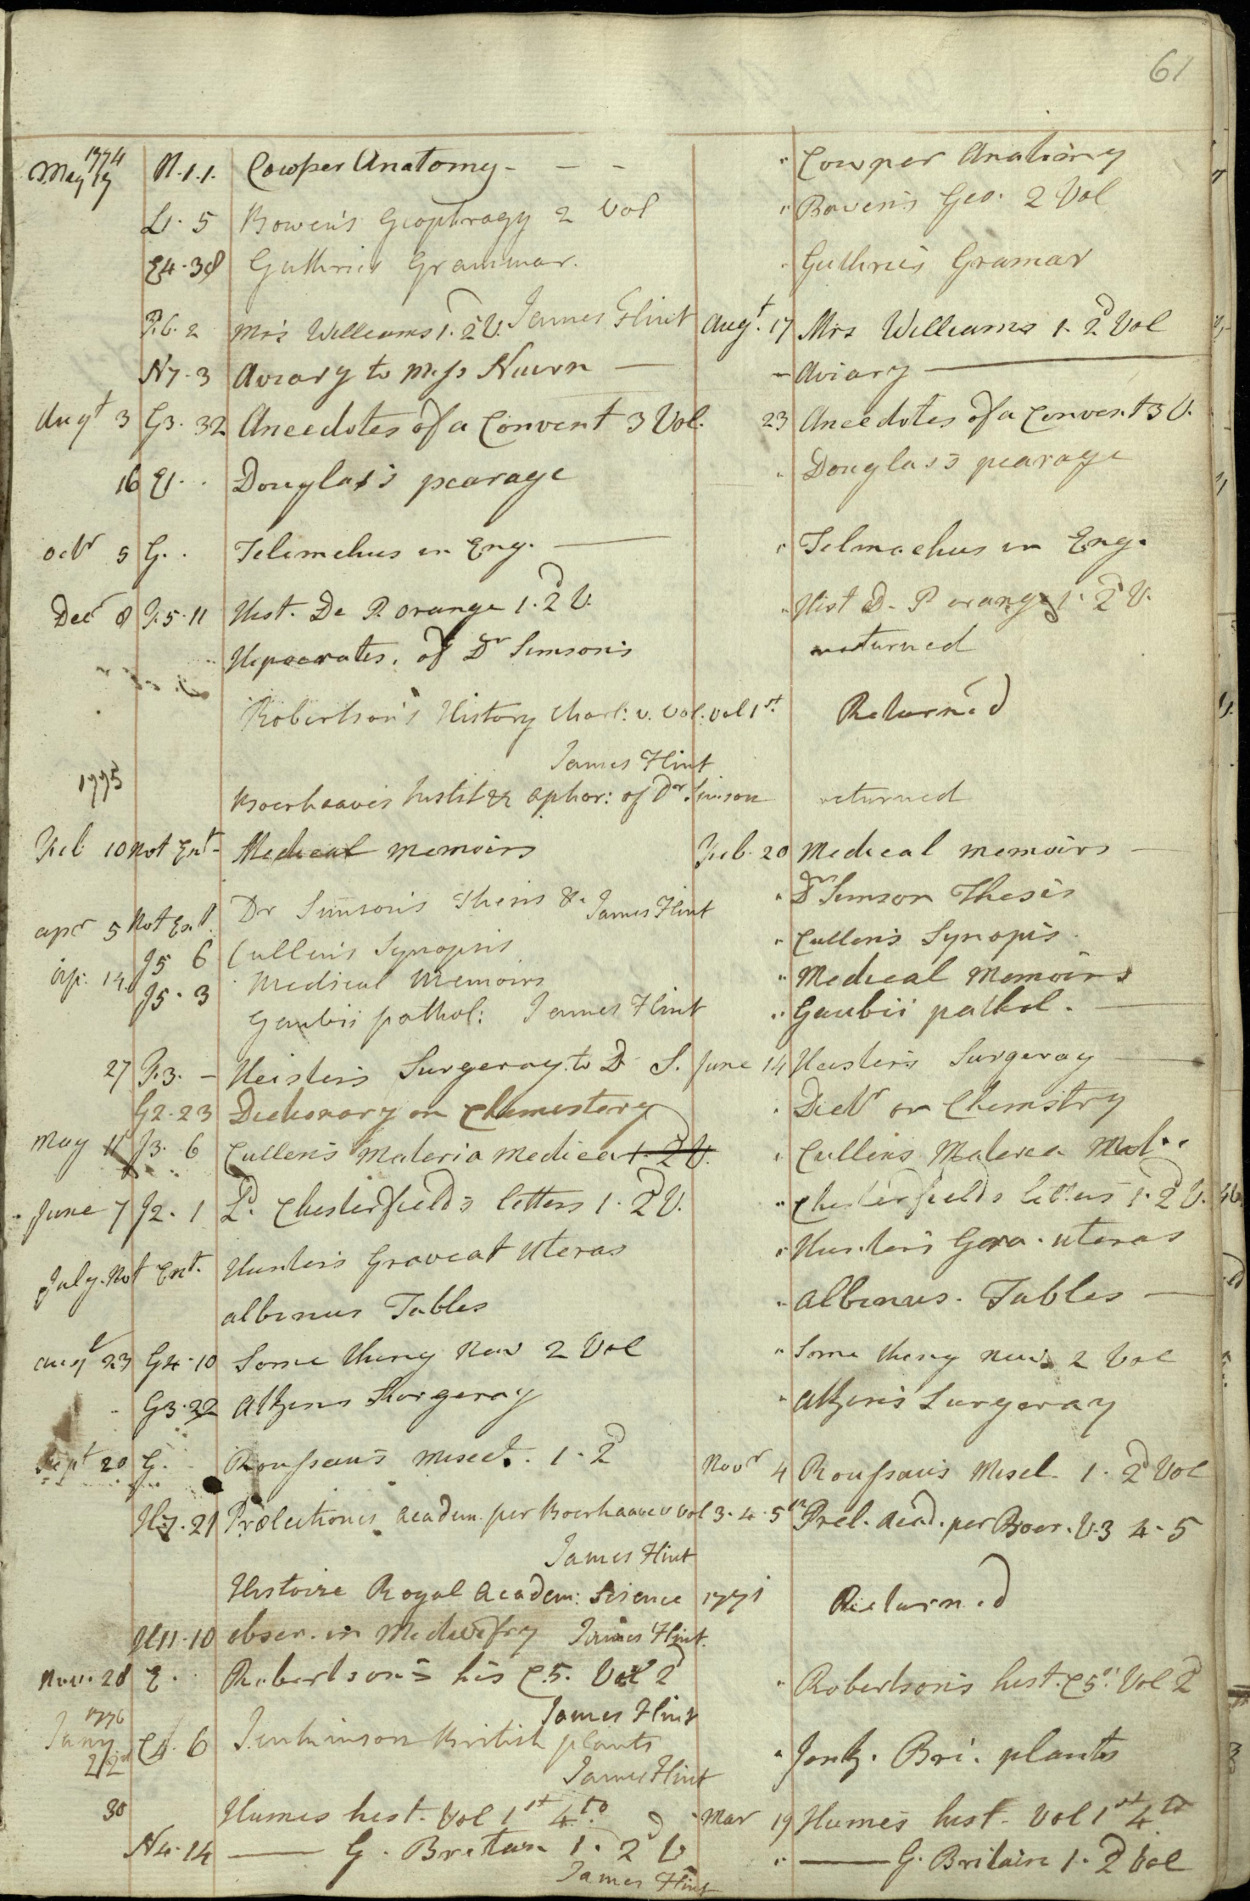 61
1774
May 19 N.1.1. Cowper Anatomy - - - " Cowper Anatomy
L1. 5 Bowen's Geophragy 2 Vol " Bowen's Geo. 2 Vol
E4.38 Guthries Grammar. " Guthries Gramar
P.6.2 Mrs Williams 1. 2d V. James Flint Augt. 17 Mrs Williams 1. 2d Vol
N7.3 Aviary to Miss Nairn — " Aviary —
Augt 3 G3.32 Anecdotes of a Convent 3 Vol. 23 Anecdotes of a Convent 3 V.
16 E1. . Douglas's pearage " Douglass pearage
Octr 5 G. . Telemehus in Eng. — " Telmachus in Eng.
Decr 8 F.5.11 Hist. De P. orange 1. 2d V. " Hist D. P orange 1. 2d V.
Hipocrates. of Dr Simson's returned
Robertson's History Charl: v. Vol: vol 1st. Return'd
James Flint
1775
Boerhaaves Instit & aphor: of Dr Simson returned
Feb 10 Not Ent. Medical memoirs Feb. 20 Medical memoirs —
Dr Simson's Thesis &. James Flint " Dr Simson Thesis
apr 5 Not Ent. Cullen's Synopsis " Cullen's Synopis
J5 6 Medical Memoirs " Medical Memoirs
ap. 14 J5.3 Gaubii pathol: James Flint " Gaubii pathol. —
27 F.3. - Heister's Surgeray to D. S. June 14 Heister's Surgeray —
G2.23 Dictionary on Chemestery " Dictr on Chemistry
May 11 J3. 6 Cullen's Materia Medica 1. 2d V. " Cullens Materea Med..
June 7 J2. 1 Ld. Chesterfield's letters 1. 2d V. " Chesterfields letters 1. 2d V.
July. Not Ent. Hunters Graveat Uteras " Hunters Gra. uteras
albinus Tables " albinus. Tables —
augt 23 G4.10 Some thing New 2 Vol " Some thing new 2 Vol
G3.22 Atkens Surgeray " atkens Surgeray
Sept 20 G. Roussau's Miscel. 1. 2d Novr 4 Roussau's Miscel 1. 2d Vol
H7.21 Prælectiones academ. per Boerhaave v vol 3. 4. 5th Prel. Acad. per Boer. V.3 4. 5
James Flint
Histoire Royal Academ: Science 1771 Return.d
H11.10 obser. in Midwifry James Flint.
Nov. 28 E. . Robertson's his C.5. Vol 2d " Robertson's hist. C5th. Vol 2d
James Flint
1776
Jany 22d C4. 6 Jenkinson British plants " Jenk. Bri. plants
James Flint
30 Humes hist. Vol 1st 4to Mar 19 Humes hist. Vol 1st 4to
N4.14 — G. Britain 1. 2d V " — G. Britain 1. 2d Vol
James Flint